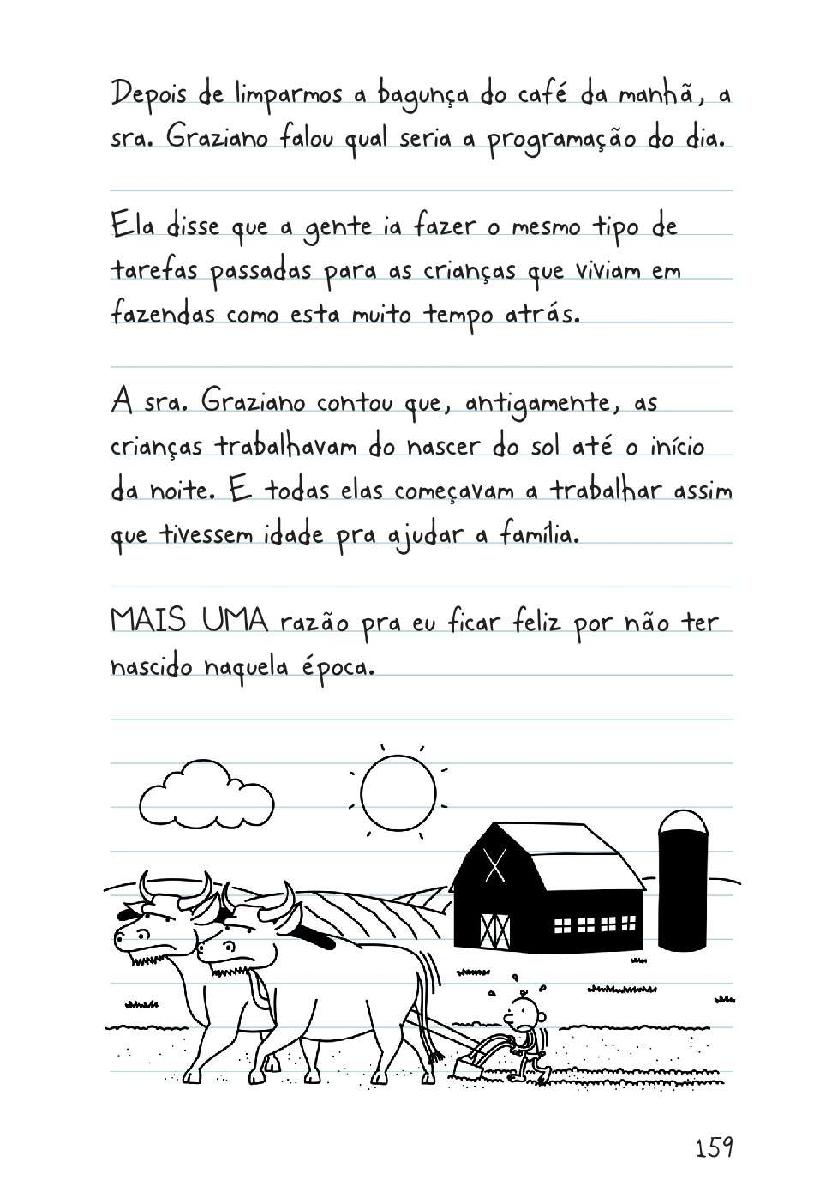 Depois de limparmos a bagunça do café da manhã, a
sra. Graziano falou qual seria a programação do dia.
Ela disse que a gente ia fazer o mesmo tipo de
tarefas passadas para as crianças que viviam em
fazendas como esta muito tempo atrás.
A sra. Graziano contou que, antigamente, as
crianças trabalhavam do nascer do sol até o início
da noite. E todas elas começavam a trabalhar assim
que tivessem idade pra ajudar a família.
MAIS UMA razão pra eu ficar feliz por não ter
nascido naquela época.
159